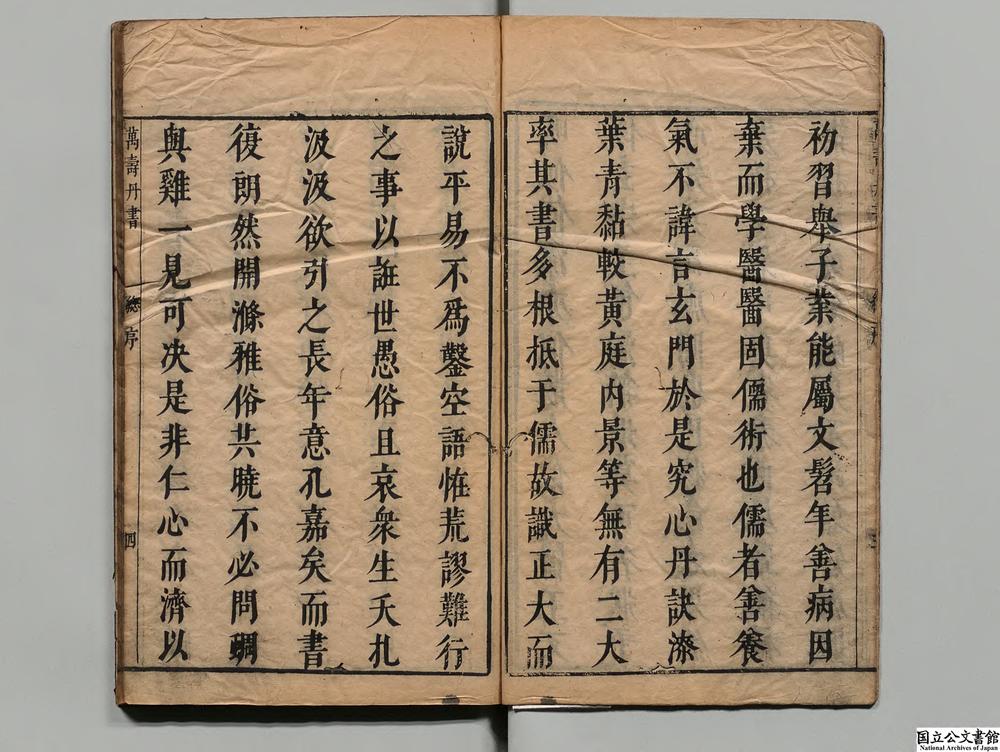 初習舉子業能屬文髫年善病因
棄而學醫醫固儒術也儒者善養
氣不諱言玄門於是究心丹訣漆
葉青黏較黃庭內景等無有二大
率其書多根柢于儒故識正大而
說平易不爲鑿空語恠荒謬難行
之事以誑世愚俗且哀衆生夭札
汲汲欲引之長年意孔嘉矣而書
復朗然開滌雅俗共曉不必問鵰
與雞一見可决是非仁心而濟以
萬壽丹書 總序 四
国立公文書館
National Archives of Japan